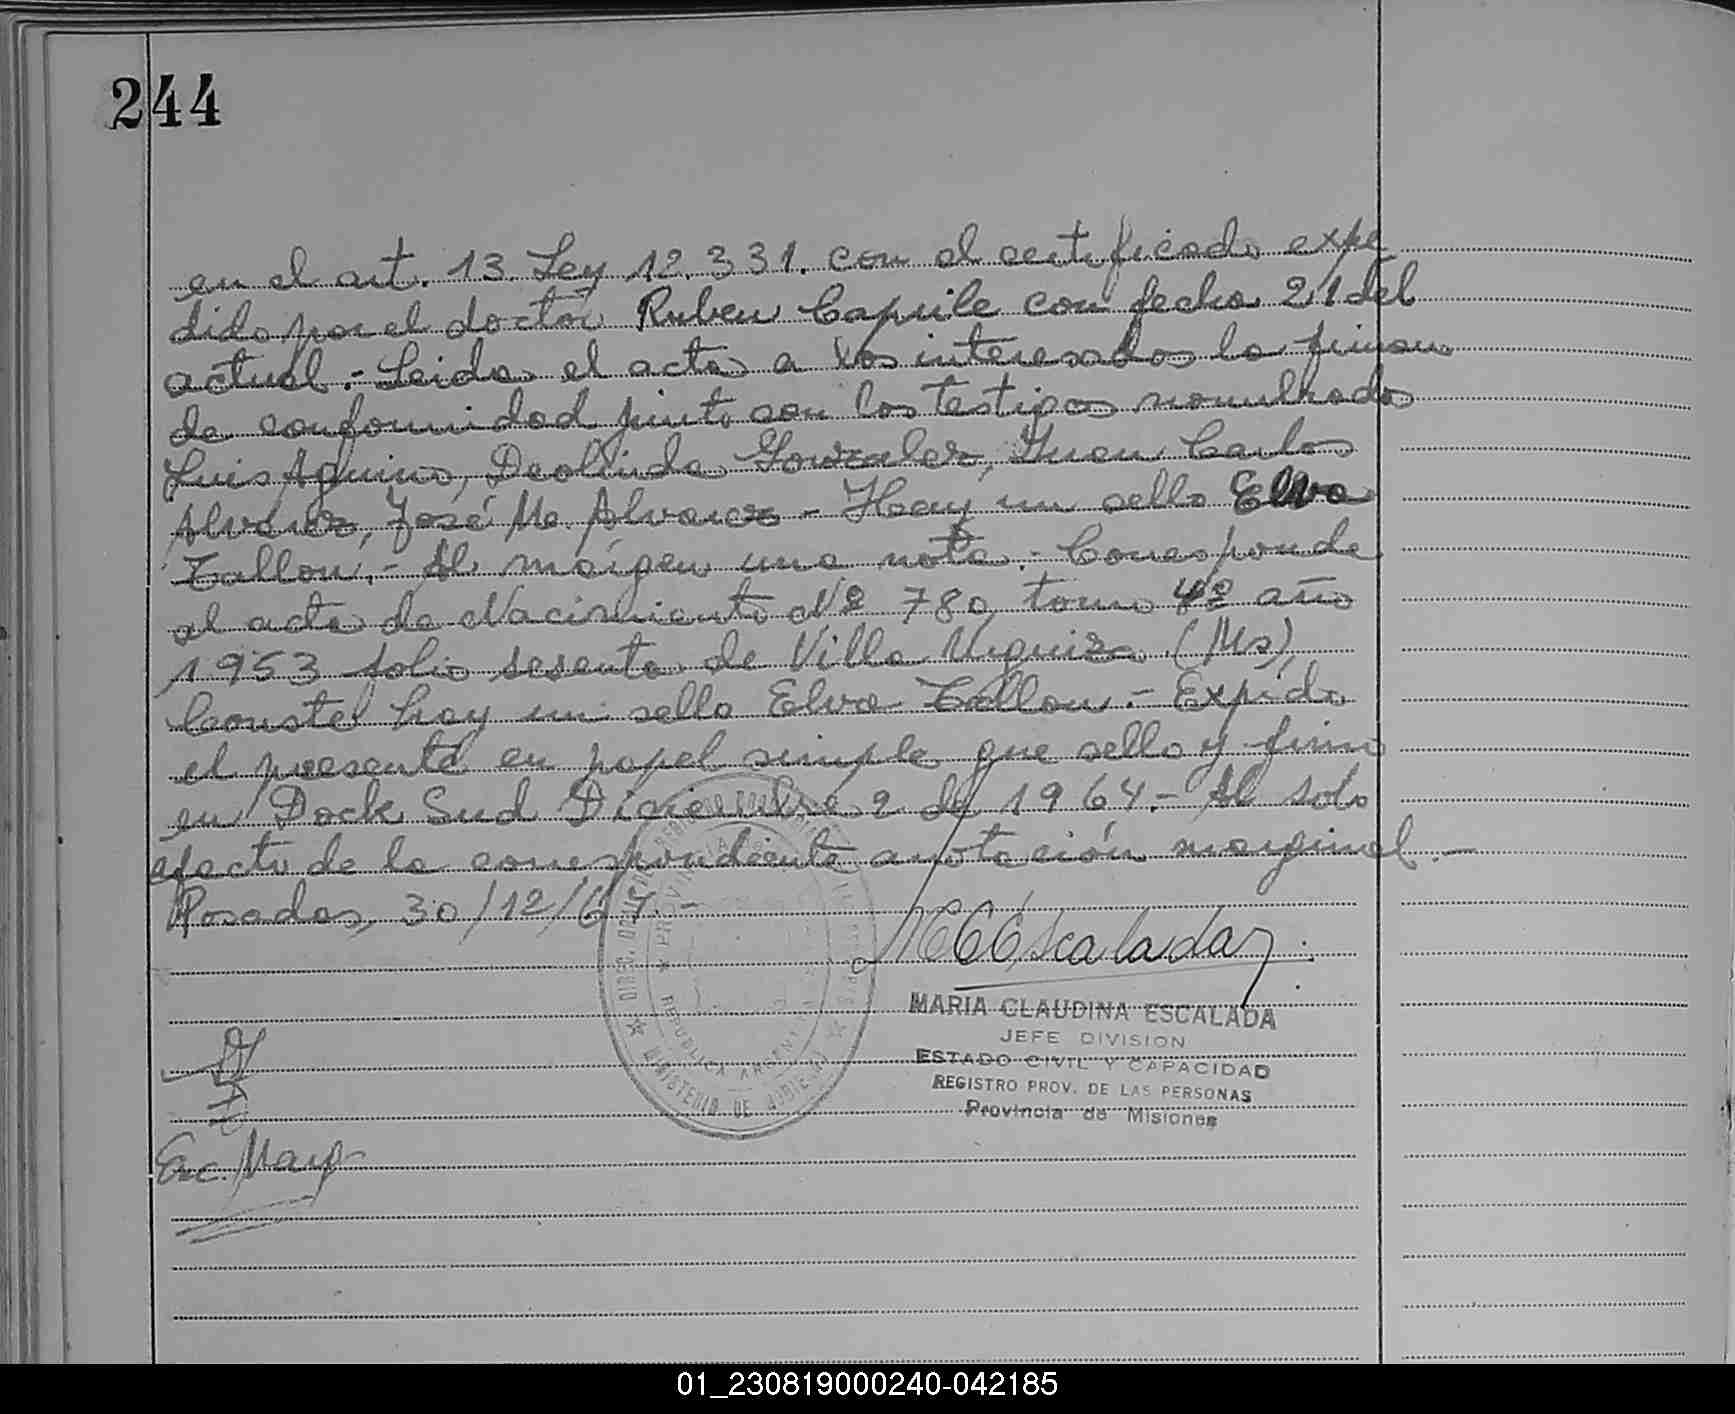 244
en el art. 13 Ley 12.331. con el certificado expe
dido por el doctor Ruben Capuile con fecha 21 del
actual.- Leida el acta a los interesados la firman
de conformidad junto con los testigos nombrados
Luis Aquino, Deolinda Gonzalez, Juan Carlos
Alvarez, José Ma. Alvarez - Hay un sello Elva
Tallon.- Al márgen una nota.- Corresponde
al acta de Nacimiento Nº 780, tomo 4º año
1953 folio sesenta de Villa Urquiza (Ms),
Conste! hay un sello Elva Tallon.- Expido
el presente en papel simple que sello y firmo
en Dock Sud Diciembre 2 de 1964.- Al solo
efecto de la correspondiente anotación marginal.-
Posadas, 30/12/67.-
MCEscalada
MARIA CLAUDINA ESCALADA
JEFE DIVISION
ESTADO CIVIL Y CAPACIDAD
REGISTRO PROV. DE LAS PERSONAS
Provincia de Misiones
PROVINCIA
REPUBLICA ARGENTINA
MINISTERIO DE GOBIERNO
Enc. May
01_230819000240-042185